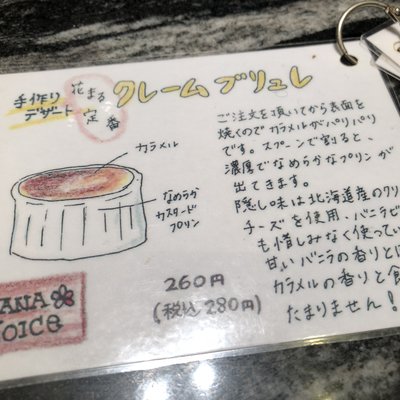 手作り
デザート
花まる
定番
クレームブリュレ
カラメル
なめらか
カスタード
プリン
ご注文を頂いてから表面を
焼くのでカラメルがパリパリ
です。スプーンで割ると、
濃厚でなめらかなプリンが
出てきます。
隠し味は北海道産のクリ
チーズを使用、バニラビ
も惜しみなく使ってい
甘いバニラの香りとほ
カラメルの香りと食
たまりません!
260円
(税込280円)
ANA
OICE